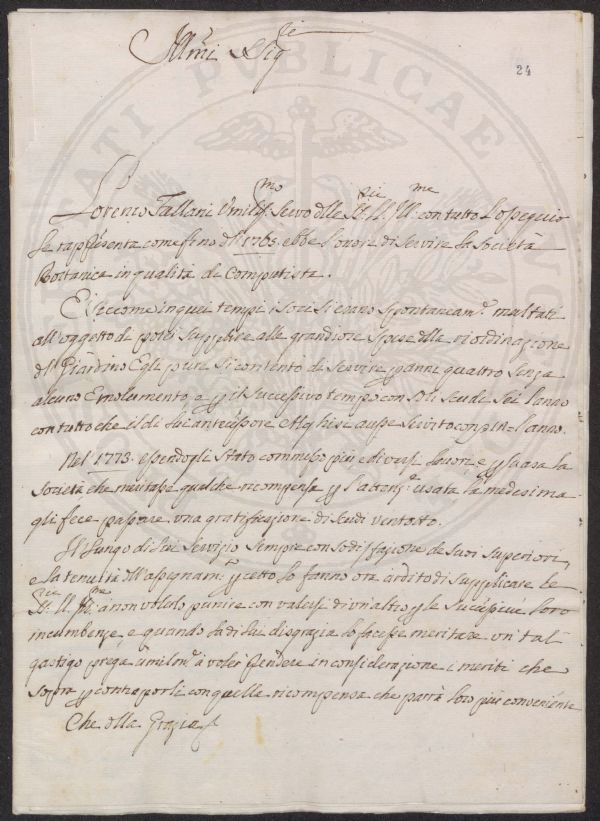 Ill.mi Sig.ri
24
Lorenzo Tallani Umiliss.mo Servo delle SS.rie LL. Ill.me con tutto l'ossequio
le rappresenta come fino del 1765. ebbe l'onore di servire la Società
Bottanica in qualità di Computista.
E siccome in quei tempi i Soci si erano spontaneam.e multati
all'oggetto di poter supplire alle grandiose spese della riordinazione
del Giardino Egli pure si contentò di servire p anni quattro senza
alcuno Emolumento, e p il successivo tempo con soli scudi Sei l'anno
con tutto che il di lui antecessore Meghi se avesse servito con l'anno.
Nel 1773. essendogli stato commesso più e diversi lavori, e p la asa la
Società che meritasse qualche ricompensa p l'attenz.e usata la medesima
gli fece passare una gratificazione di scudi ventotto.
Il lungo di lui servizio sempre con sodisfazione de suoi Superiori,
e la tenuità dell'assegnam.o p certo lo fanno ora ardito di supplicare le
SS.rie LL. Ill.me à non volerlo punire con valersi di un altro p le successive loro
incumbenze, e quando la di lui disgrazia lo facesse meritare un tal
gastigo prega umilm.e à voler prendere in considerazione i meriti che
sopra p contraporli con quella ricompensa che parrà loro più conveniente
Che della Grazia